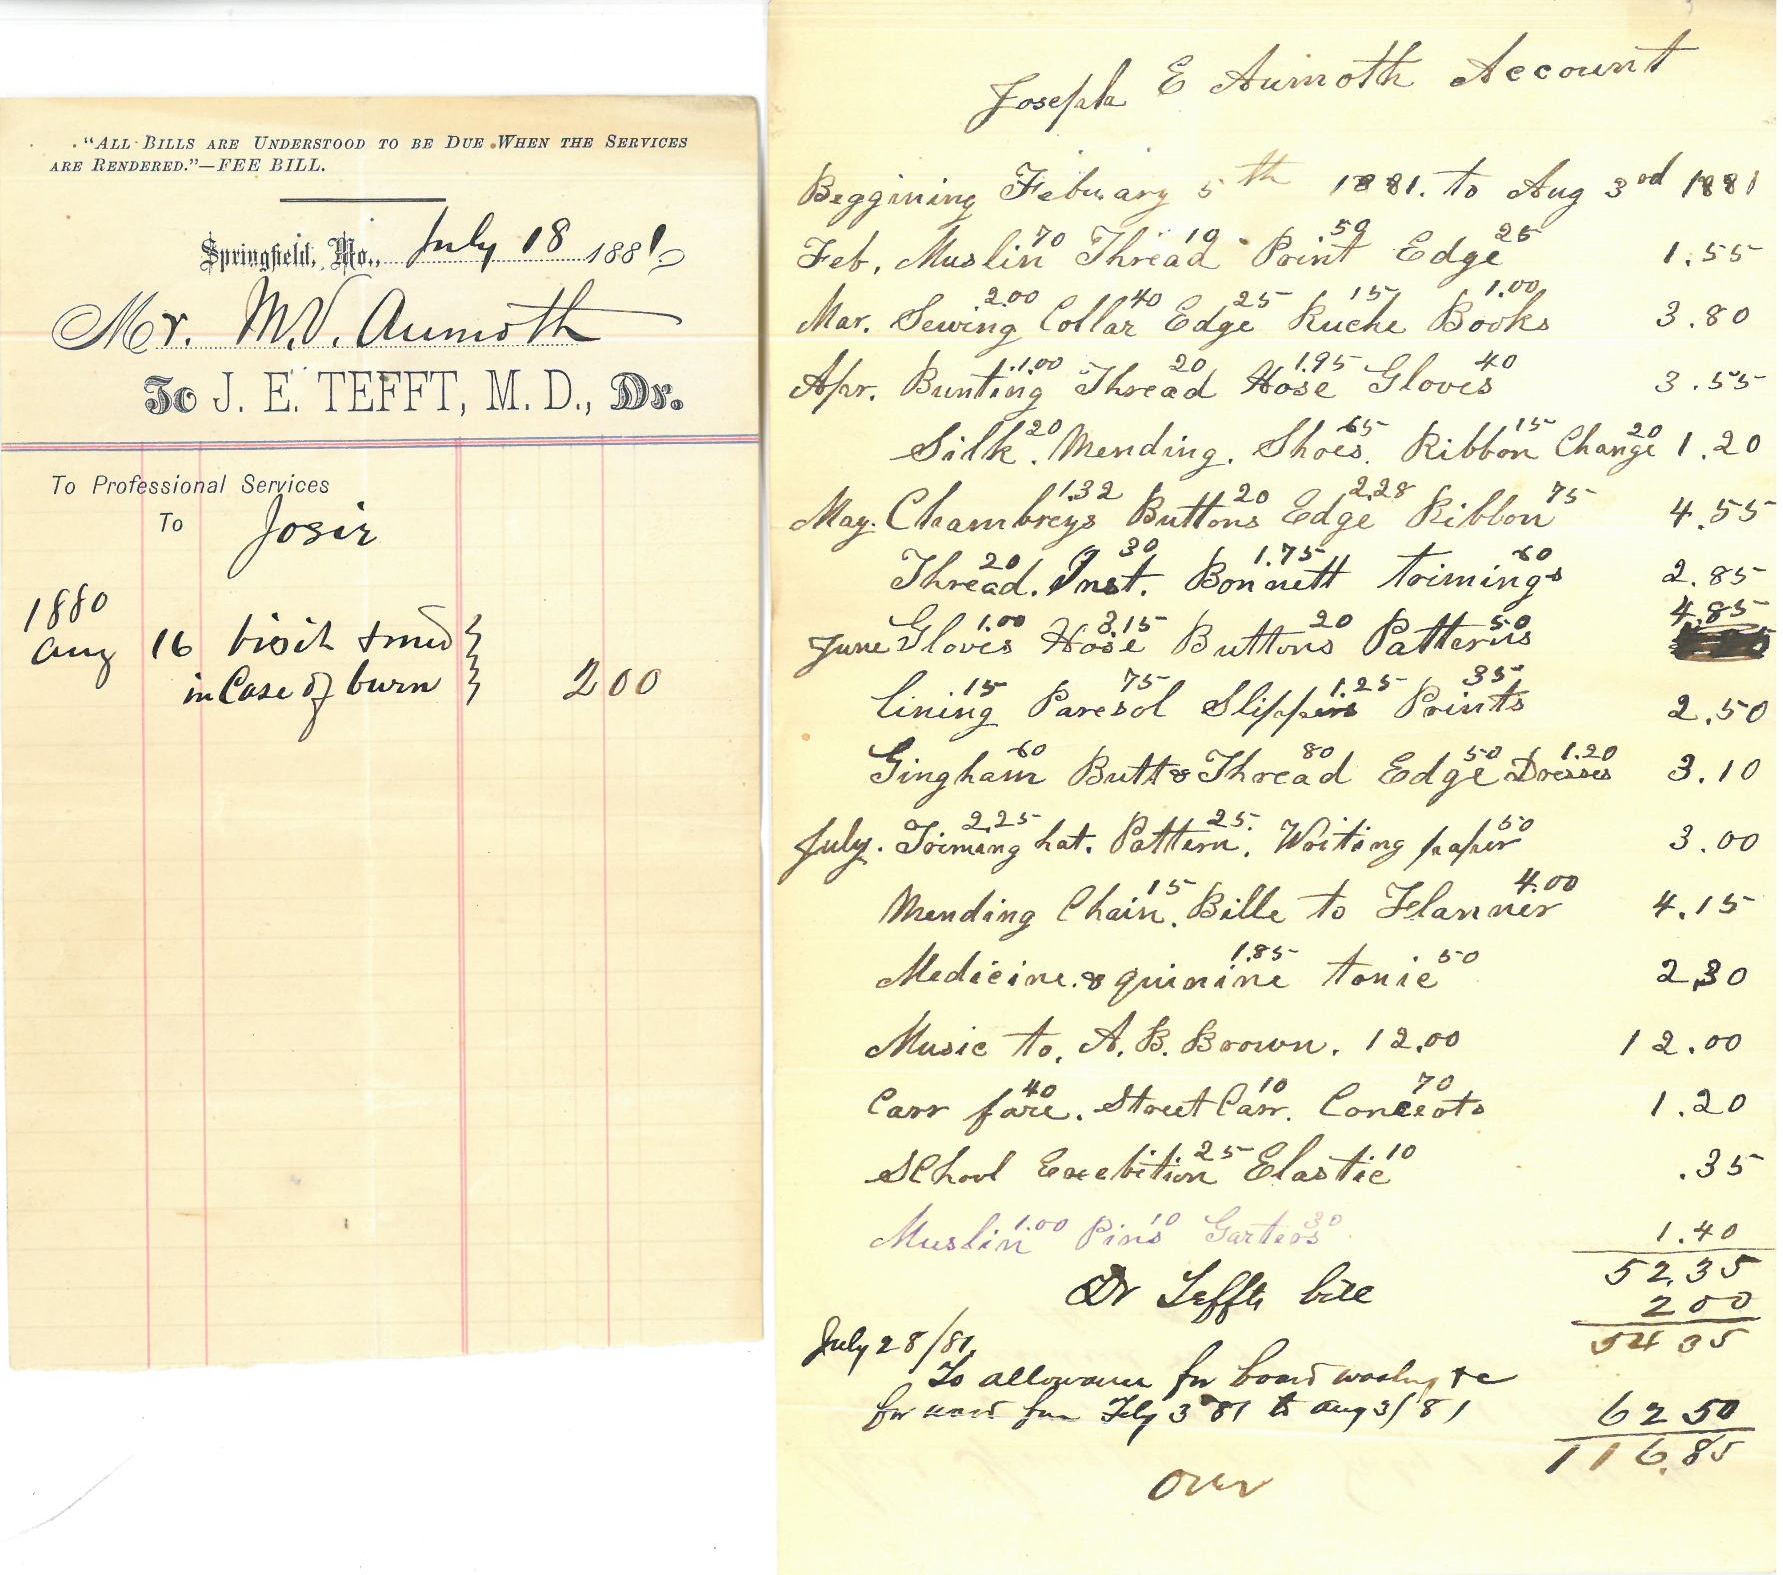 "All Bills are Understood to be Due When the Services
are Rendered."—FEE BILL.
Springfield, Mo., July 18 1881
Mr. M.V. Aumoth
To J. E. TEFFT, M. D., Dr.
To Professional Services
To Josie
1880
Aug 16 visit & med
in Case of burn 2 00
Joseph E Aumoth Account
Beggining Febuary 5th 1881. to Aug 3rd 1881
Feb. Muslin 70 Thread 10 Print 50 Edge 25 1.55
Mar. Sewing 2.00 Collar 40 Edge 25 Ruche 15 Books 1.00 3.80
Apr. Bunting 1.00 Thread 20 Hose 1.95 Gloves 40 3.55
Silk 20. Mending. Shoes 65. Ribbon 15 Change 20 1.20
May. Chambreys 1.32 Buttons 20 Edge 2.28 Ribbon 75 4.55
Thread 20. Inst. 30 Bonnett 1.75 trimings 60 2.85
June Gloves 1.00 Hose 3.15 Buttons 20 Patterns 50 4.85
lining 15 Паresol 75 Slippers 1.25 Prints 35 2.50
Gingham 60 Butt & Thread 80 Edge 50 Dresses 1.20 3.10
July. Triming hat. 2.25 Pattern. 25. Writing paper 50 3.00
Mending Chain. 15 Bille to Flanner 4.00 4.15
Medicine. & quinine 1.85 tonic 50 2.30
Music to. A. B. Brown. 12.00 12.00
Carr fare. 40 Street Carr. 10 Concerts 70 1.20
School Exebition 25 Elastic 10 .35
Muslin 1.00 Pins 10 Garters 30 1.40
52.35
Dr Teffts bill 2 00
54 35
July 28/81.
To allowance for board washing &c
for ward from Feby 3 81 to Aug 3/81 62 50
116.85
Over